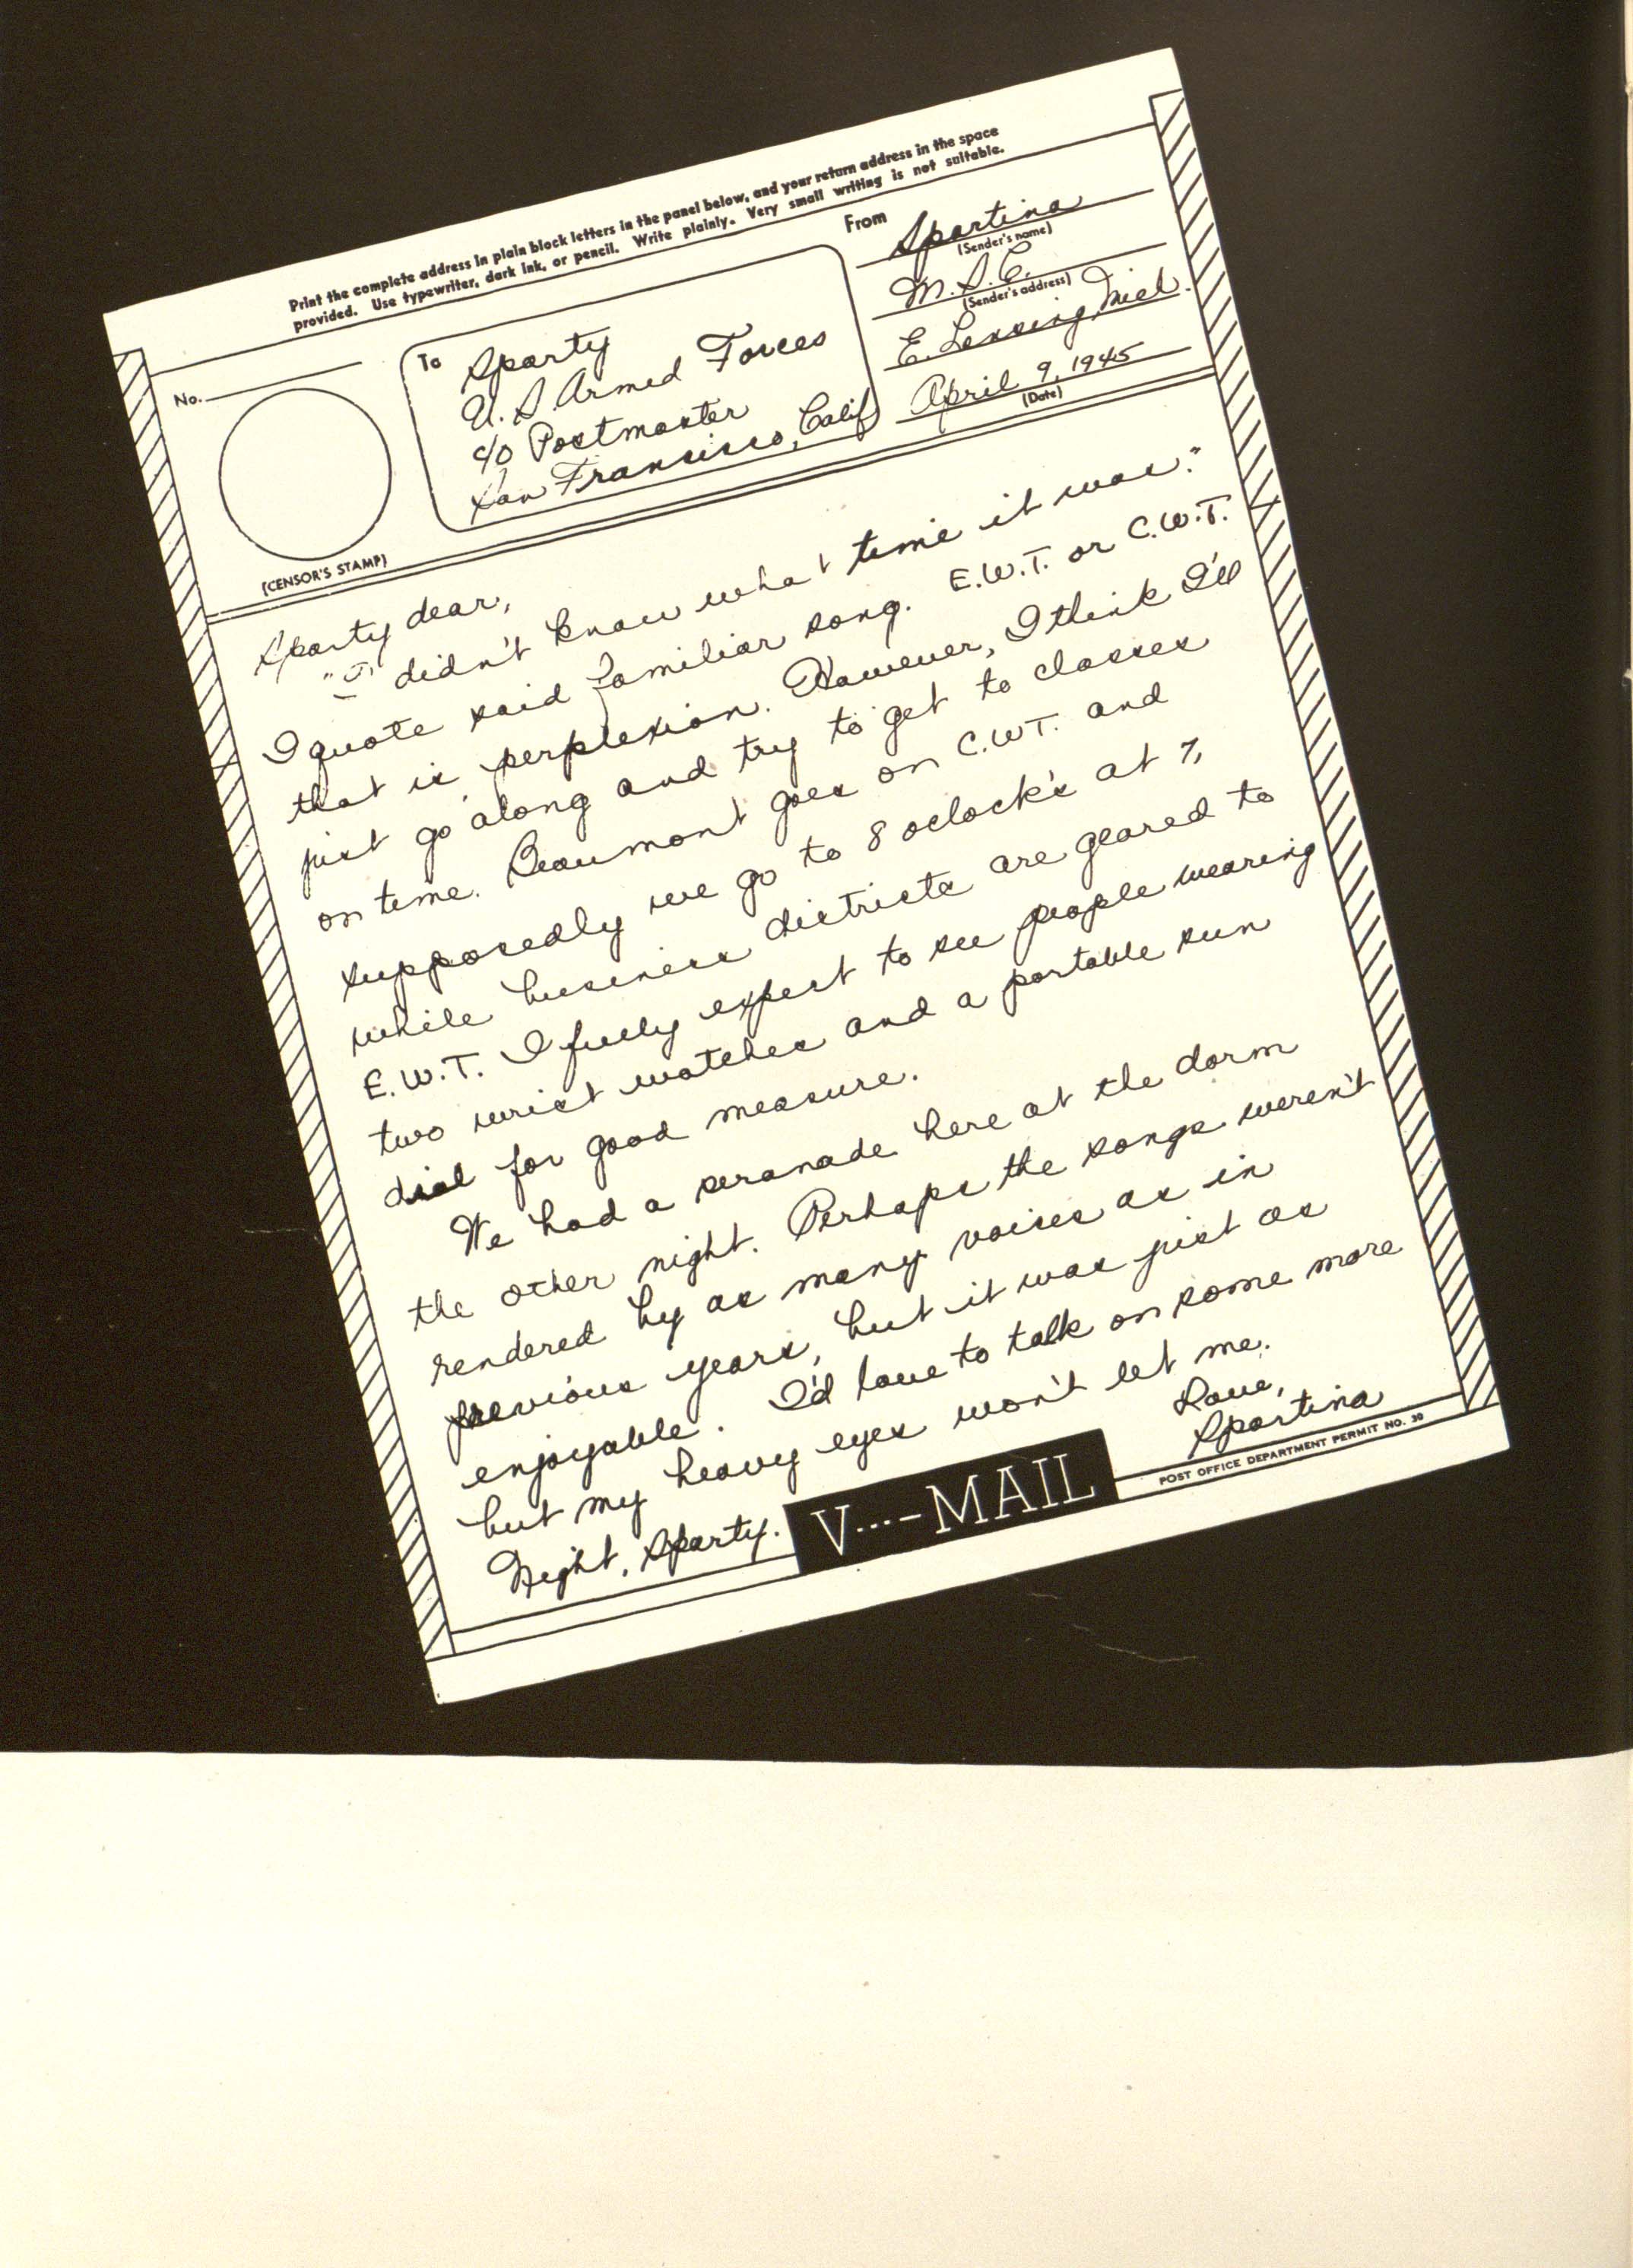 Print the complete address in plain block letters in the panel below, and your return address in the space
provided. Use typewriter, dark ink, or pencil. Write plainly. Very small writing is not suitable.
No.
(CENSOR'S STAMP)
To Sparty
U.S. Armed Forces
c/o Postmaster
San Francisco, Calif
From Spartina
(Sender's name)
M.S.C.
(Sender's address)
E. Lansing, Mich.
April 9, 1945
(Date)
Sparty dear,
"I didn't know what time it was."
I quote said familiar song. E.W.T. or C.W.T.
that is perplexion. However, I think I'll
just go along and try to get to classes
on time. Beaumont goes on C.W.T. and
supposedly we go to 8 oclock's at 7,
while business districts are geared to
E.W.T. I fully expect to see people wearing
two wrist watches and a portable sun
dial for good measure.
We had a seranade here at the dorm
the other night. Perhaps the songs weren't
rendered by as many voices as in
previous years, but it was just as
enjoyable. I'd love to talk on some more
but my heavy eyes won't let me.
Night, Sparty.
Love,
Spartina
V...-MAIL
POST OFFICE DEPARTMENT PERMIT NO. 30